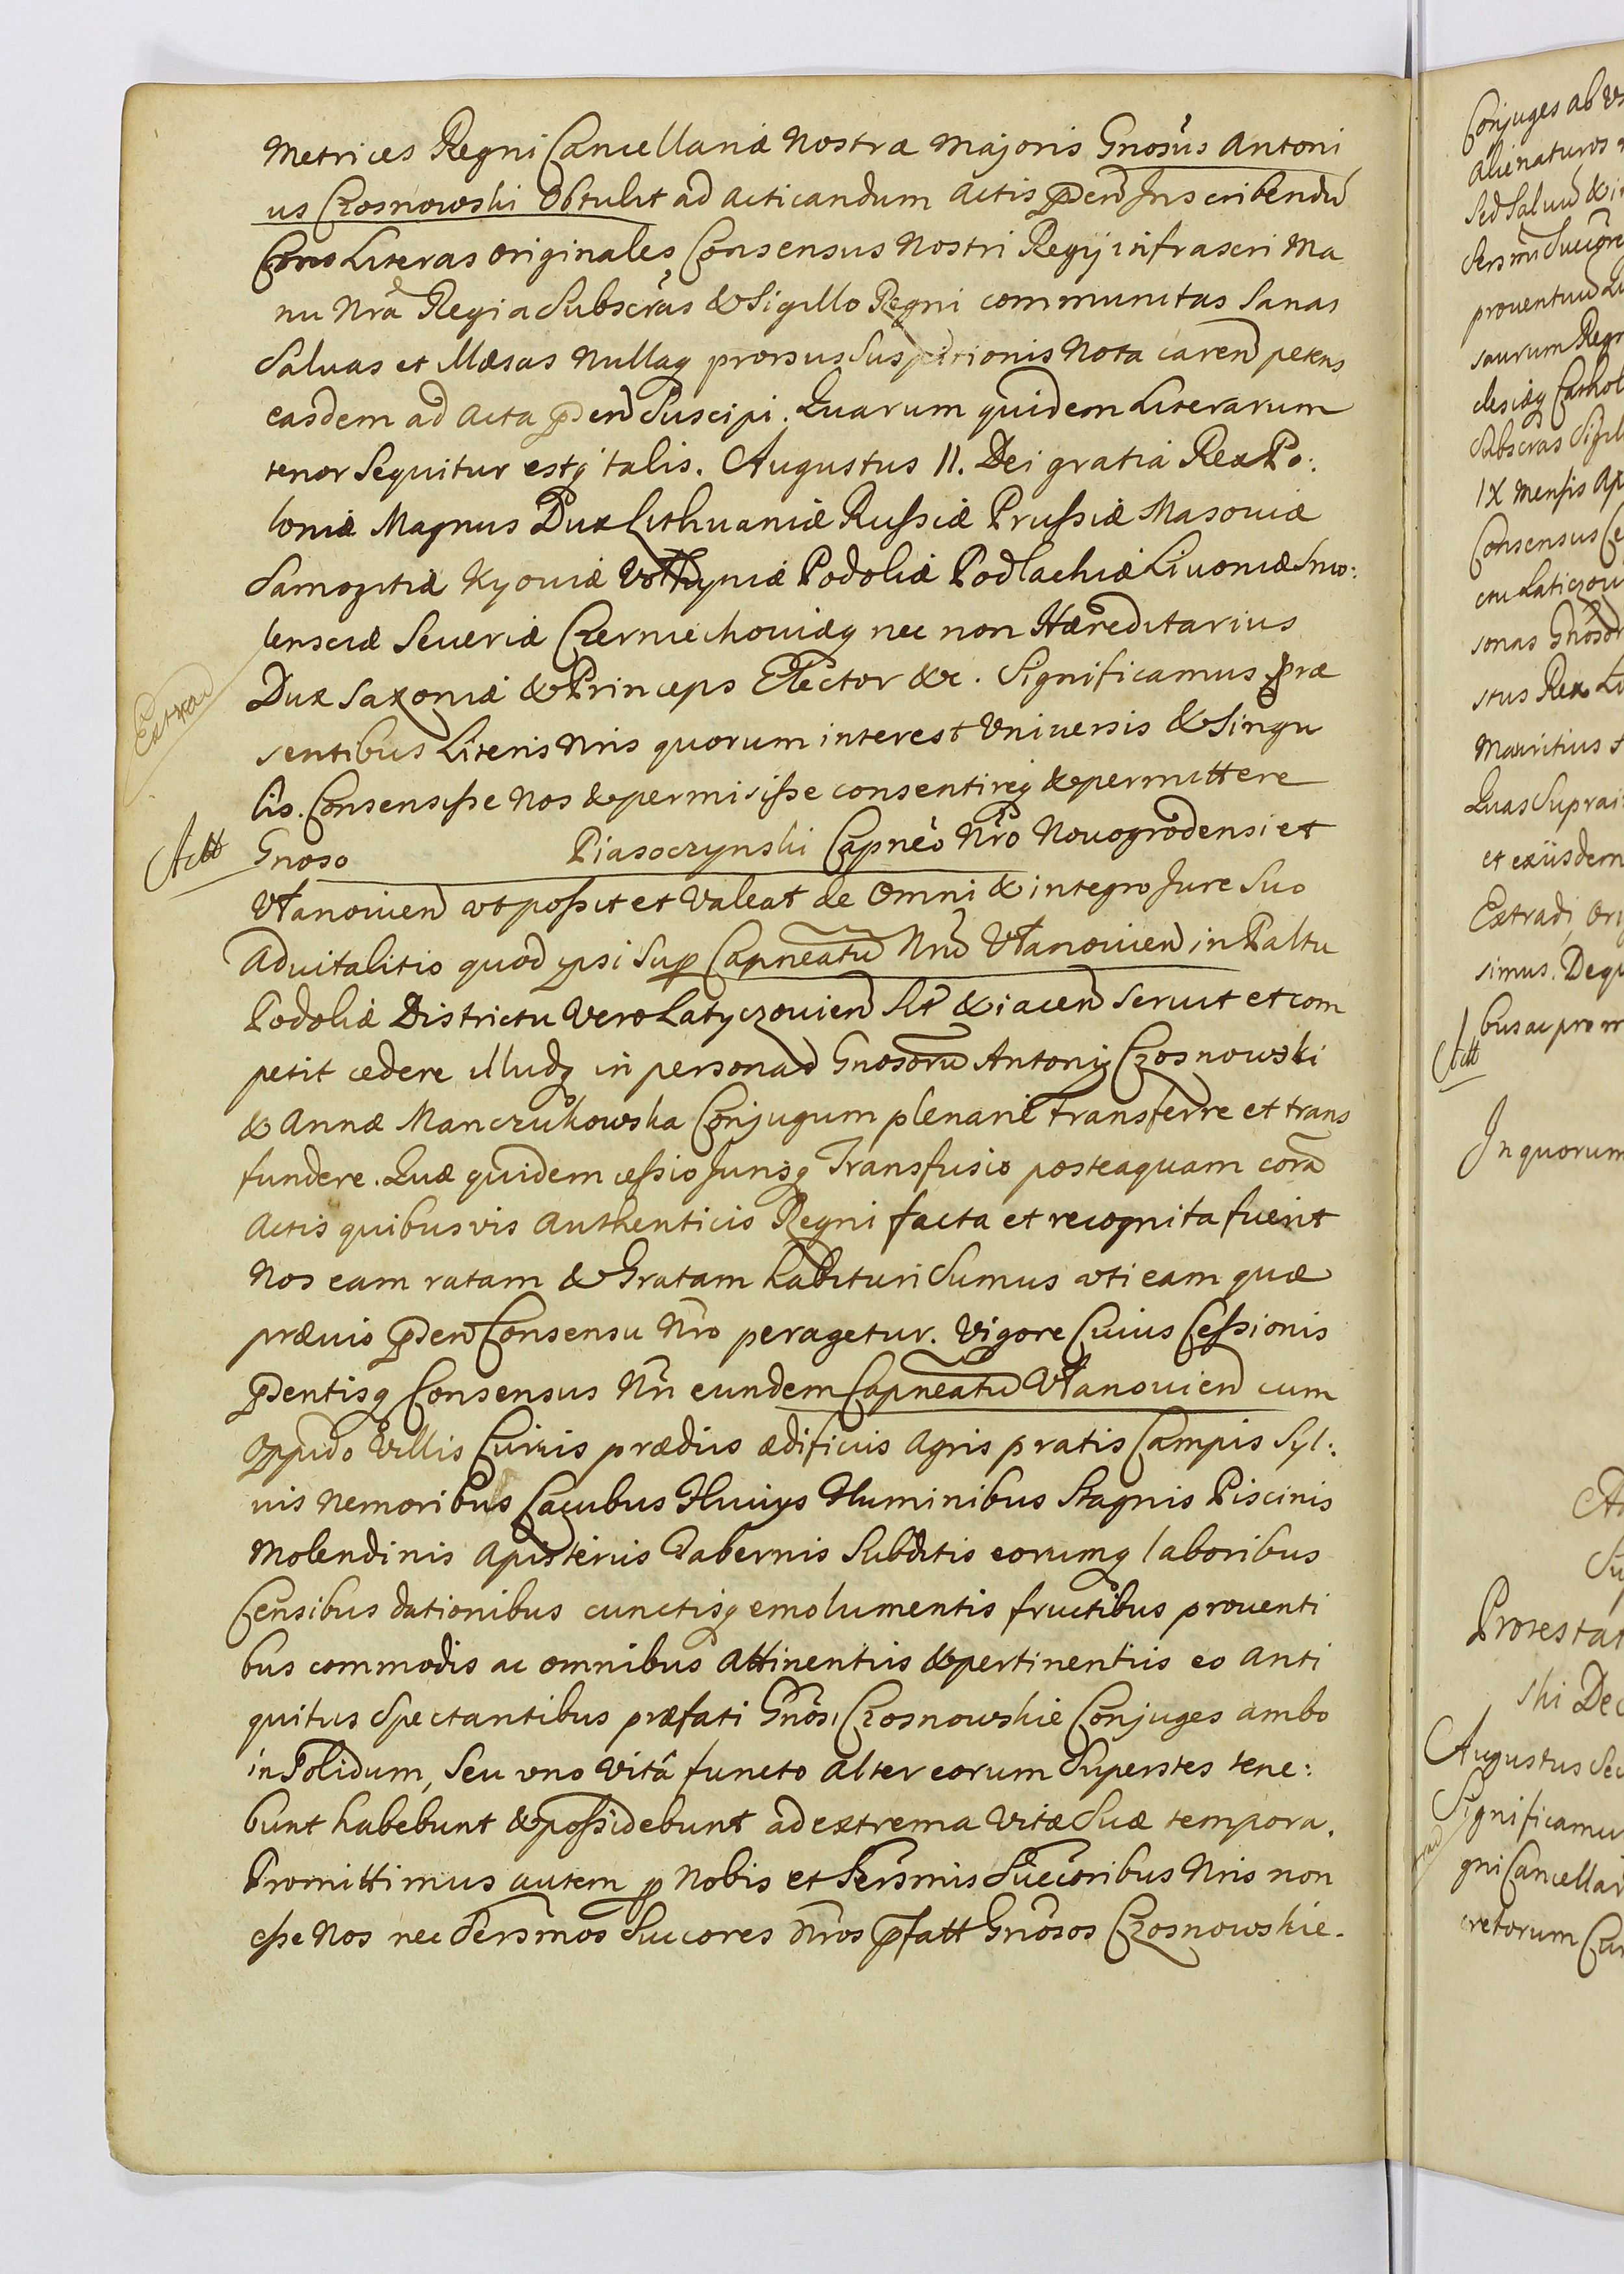 Metrices Regni Cancellariæ Nostræ Majoris Gnosus Antoni
us Czosnowski Obtulit ad acticandum Actis pnden Inscribendu
Literas Originales Consensus Nostri Regij infrascri Ma
nu Nra Regia Subscras & Sigillo Regni communitas Sanas
Saluas et Illæsas Nullaq prorsus Suspitionis Nota caren petens
easdem ad Acta pnden Suscipi. Quarum quidem Literarum
tenor Sequitur estq talis. Augustus II. Dei gratiâ Rex Po:
loniæ Magnus Dux Lithuaniæ Russiæ Prussiæ Masoviæ
Samogitiæ Kyoviæ Volhyniæ Podoliæ Podlachiæ Livoniæ Smo:
lensciæ Severiæ Czerniechoviæq nec non Hæreditarius
Dux Saxoniæ & Princeps Elector &c. Significamus præ
sentibus Literis Nris quorum interest Universis & Singu
lis. Consensisse Nos & permisisse consentireq & permittere
Gnoso Piasoczynski Capneo Nro Novogrodensi et
Ułanovien ut possit et Valeat de Omni & integro Jure Suo
Aduitalitio quod ipsi Sup Capneatu Nru Ułanovien in Paltu
Podoliæ Districtu Vero Latyczovien Sit & iacen Servit et com
petit cedere illudq in personas Gnosoru Antonij Czosnowski
& Annæ Manczukowska Conjugum plenarie transferre et trans
fundere. Quæ quidem cessio Jurisq Transfusio posteaquam cora
Actis quibusvis Authenticis Regni facta et recognita fuerit
Nos eam ratam & Gratam habituri Sumus uti eam quæ
prævio pnden Consensu Nro peragetur. Vigore Cuius Cessionis
pndentisq Consensus Nri eundem Capneatu Ułanovien cum
Oppido Villis Curiis prædiis ædificiis Agris pratis Campis Syl:
vis Nemoribus Lacubus Fluviis Fluminibus Stagnis Piscinis
Molendinis Apisteriis Tabernis Subditis eorumq laboribus
Censibus dationibus cunctisq emolumentis fructibus proventi
bus commodis ac omnibus Attinentiis & pertinentiis eo Anti
quitus Spectantibus præfati Gnosi Czosnowskie Conjuges ambo
in Solidum, Seu uno Vitâ functo Alter eorum Superstes tene:
bunt habebunt & possidebunt ad extrema Vitæ Suæ tempora.
Promittimus autem p Nobis et Sersmis Succoribus Nris non
esse Nos nec Sersmos Succores Nros pfatt Gnosos Czosnowskie.
Actt
Conjuges ab
Alienaturos
Sed Salvu &
proventuu
saurum Regn
IX Mensis Ap
Consensus
sonas Gnosor
stus Rex
Mauritius
Quas Suprai
et exiisdem
Extradi, Ori
simus. Dequ
bus ac pro
Actt
In quorum
Protestat
ski Dec
Augustus Sec
Significamu
gni Cancellar
cretorum